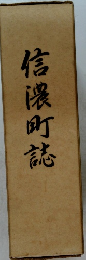 信濃町誌